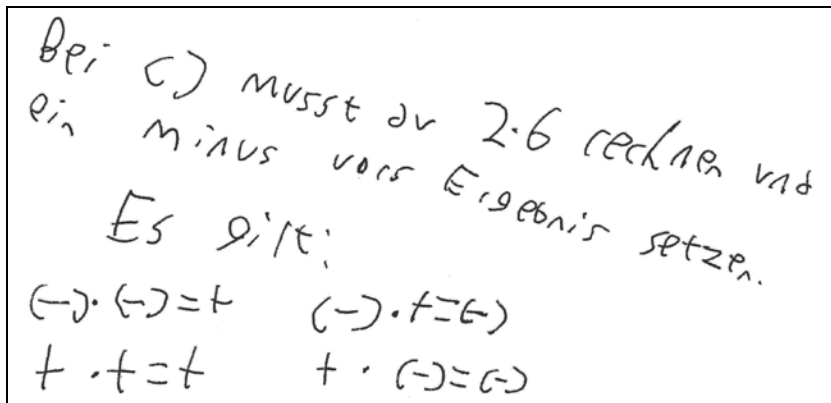 Bei c) musst du 2·6 rechnen und
ein minus vors Ergebnis setzen.
Es gilt:
(-)·(-)=+ (-)·+=(-)
+·+=+ +·(-)=(-)